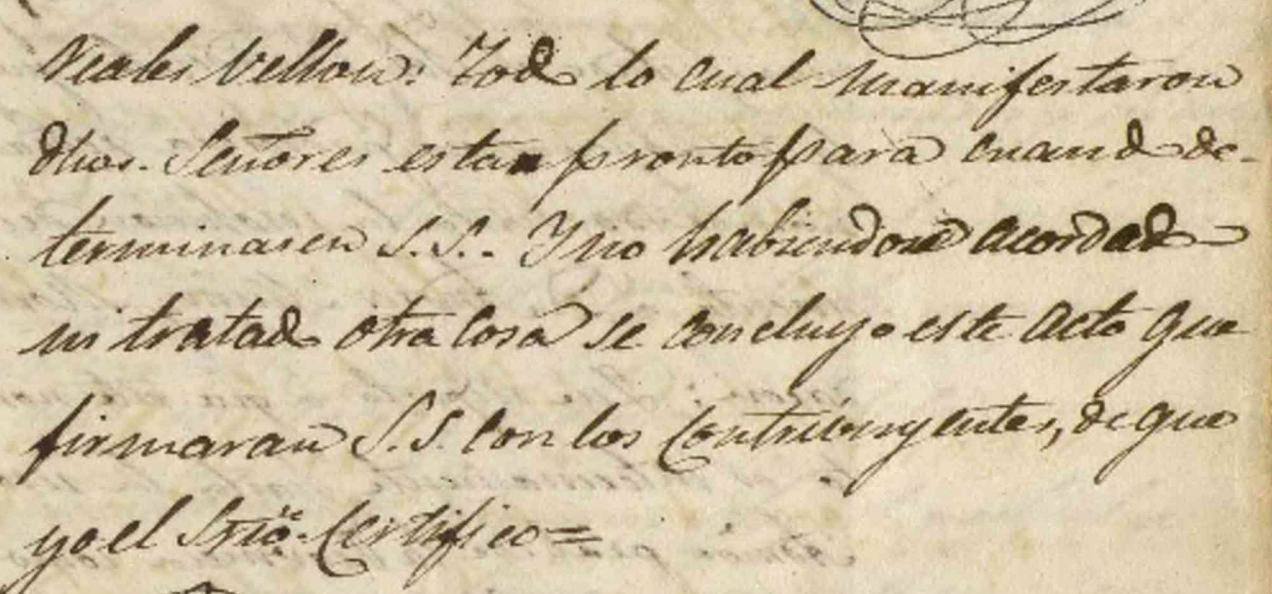 reales vellon: Todo lo cual manifestaron
dhos. Señores estan pronto para cuando de-
terminasen S.S.. Y no habiendose acordado
ni tratado otra cosa se concluyo este acto que
firmaran S.S. con los Contribuyentes, de que
yo el Srio. Certifico=